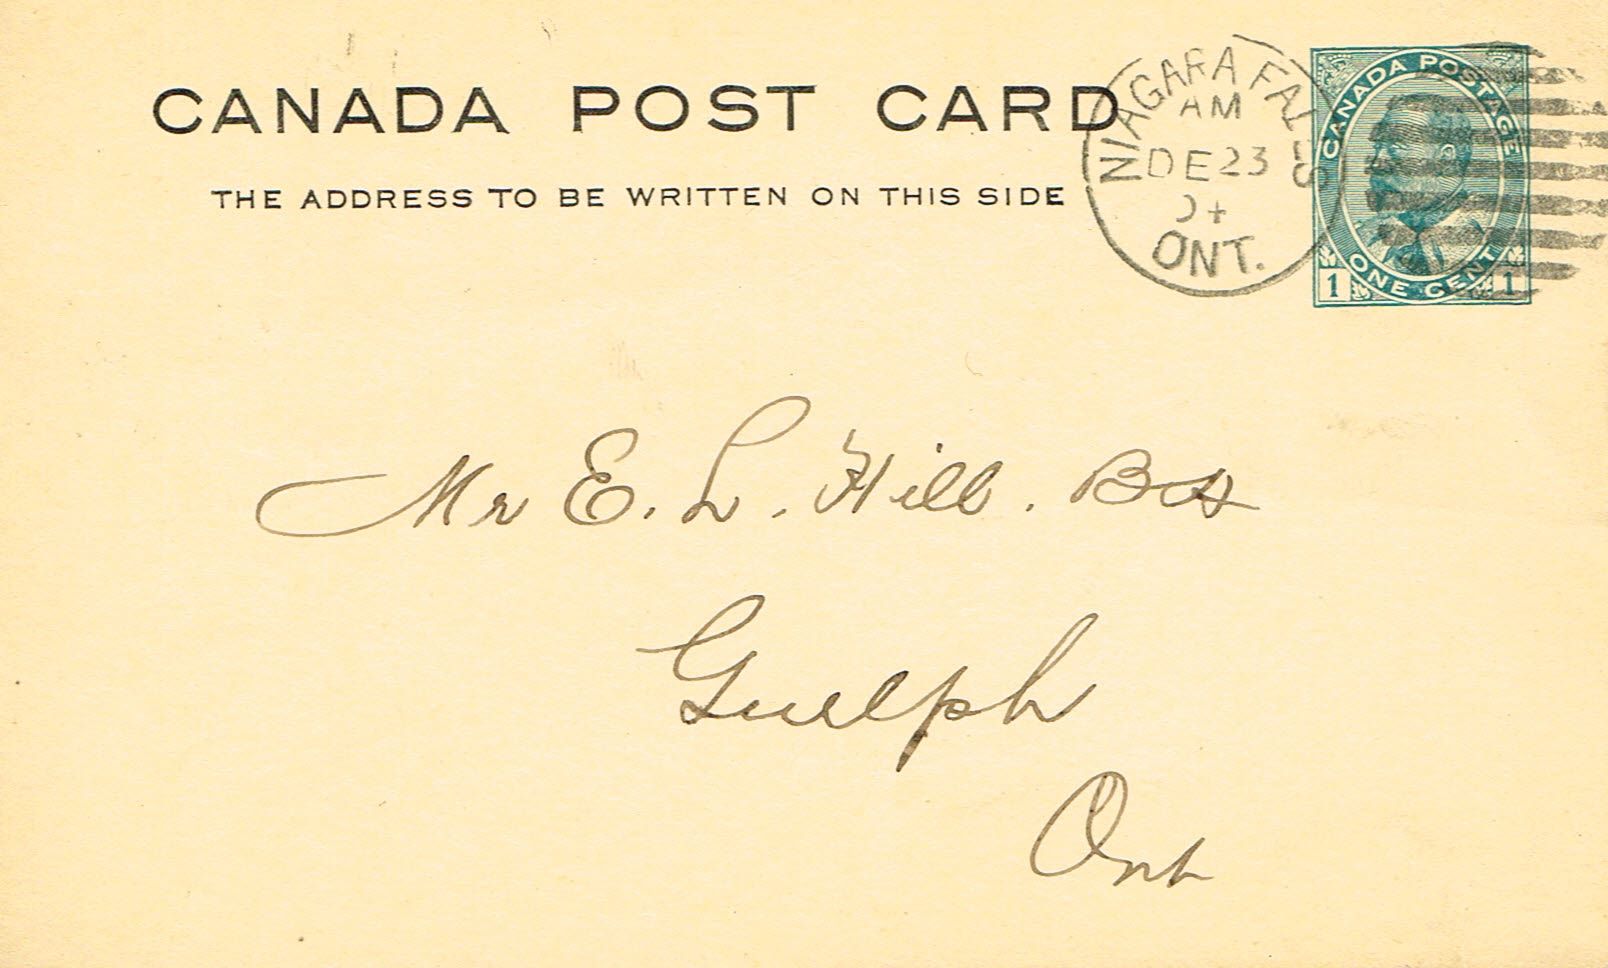 CANADA POST CARD
THE ADDRESS TO BE WRITTEN ON THIS SIDE
NIAGARA FALLS
AM
DE 23
04
ONT.
CANADA POSTAGE
ONE CENT
1 1
Mr E. L. Hill.
Guelph
Ont